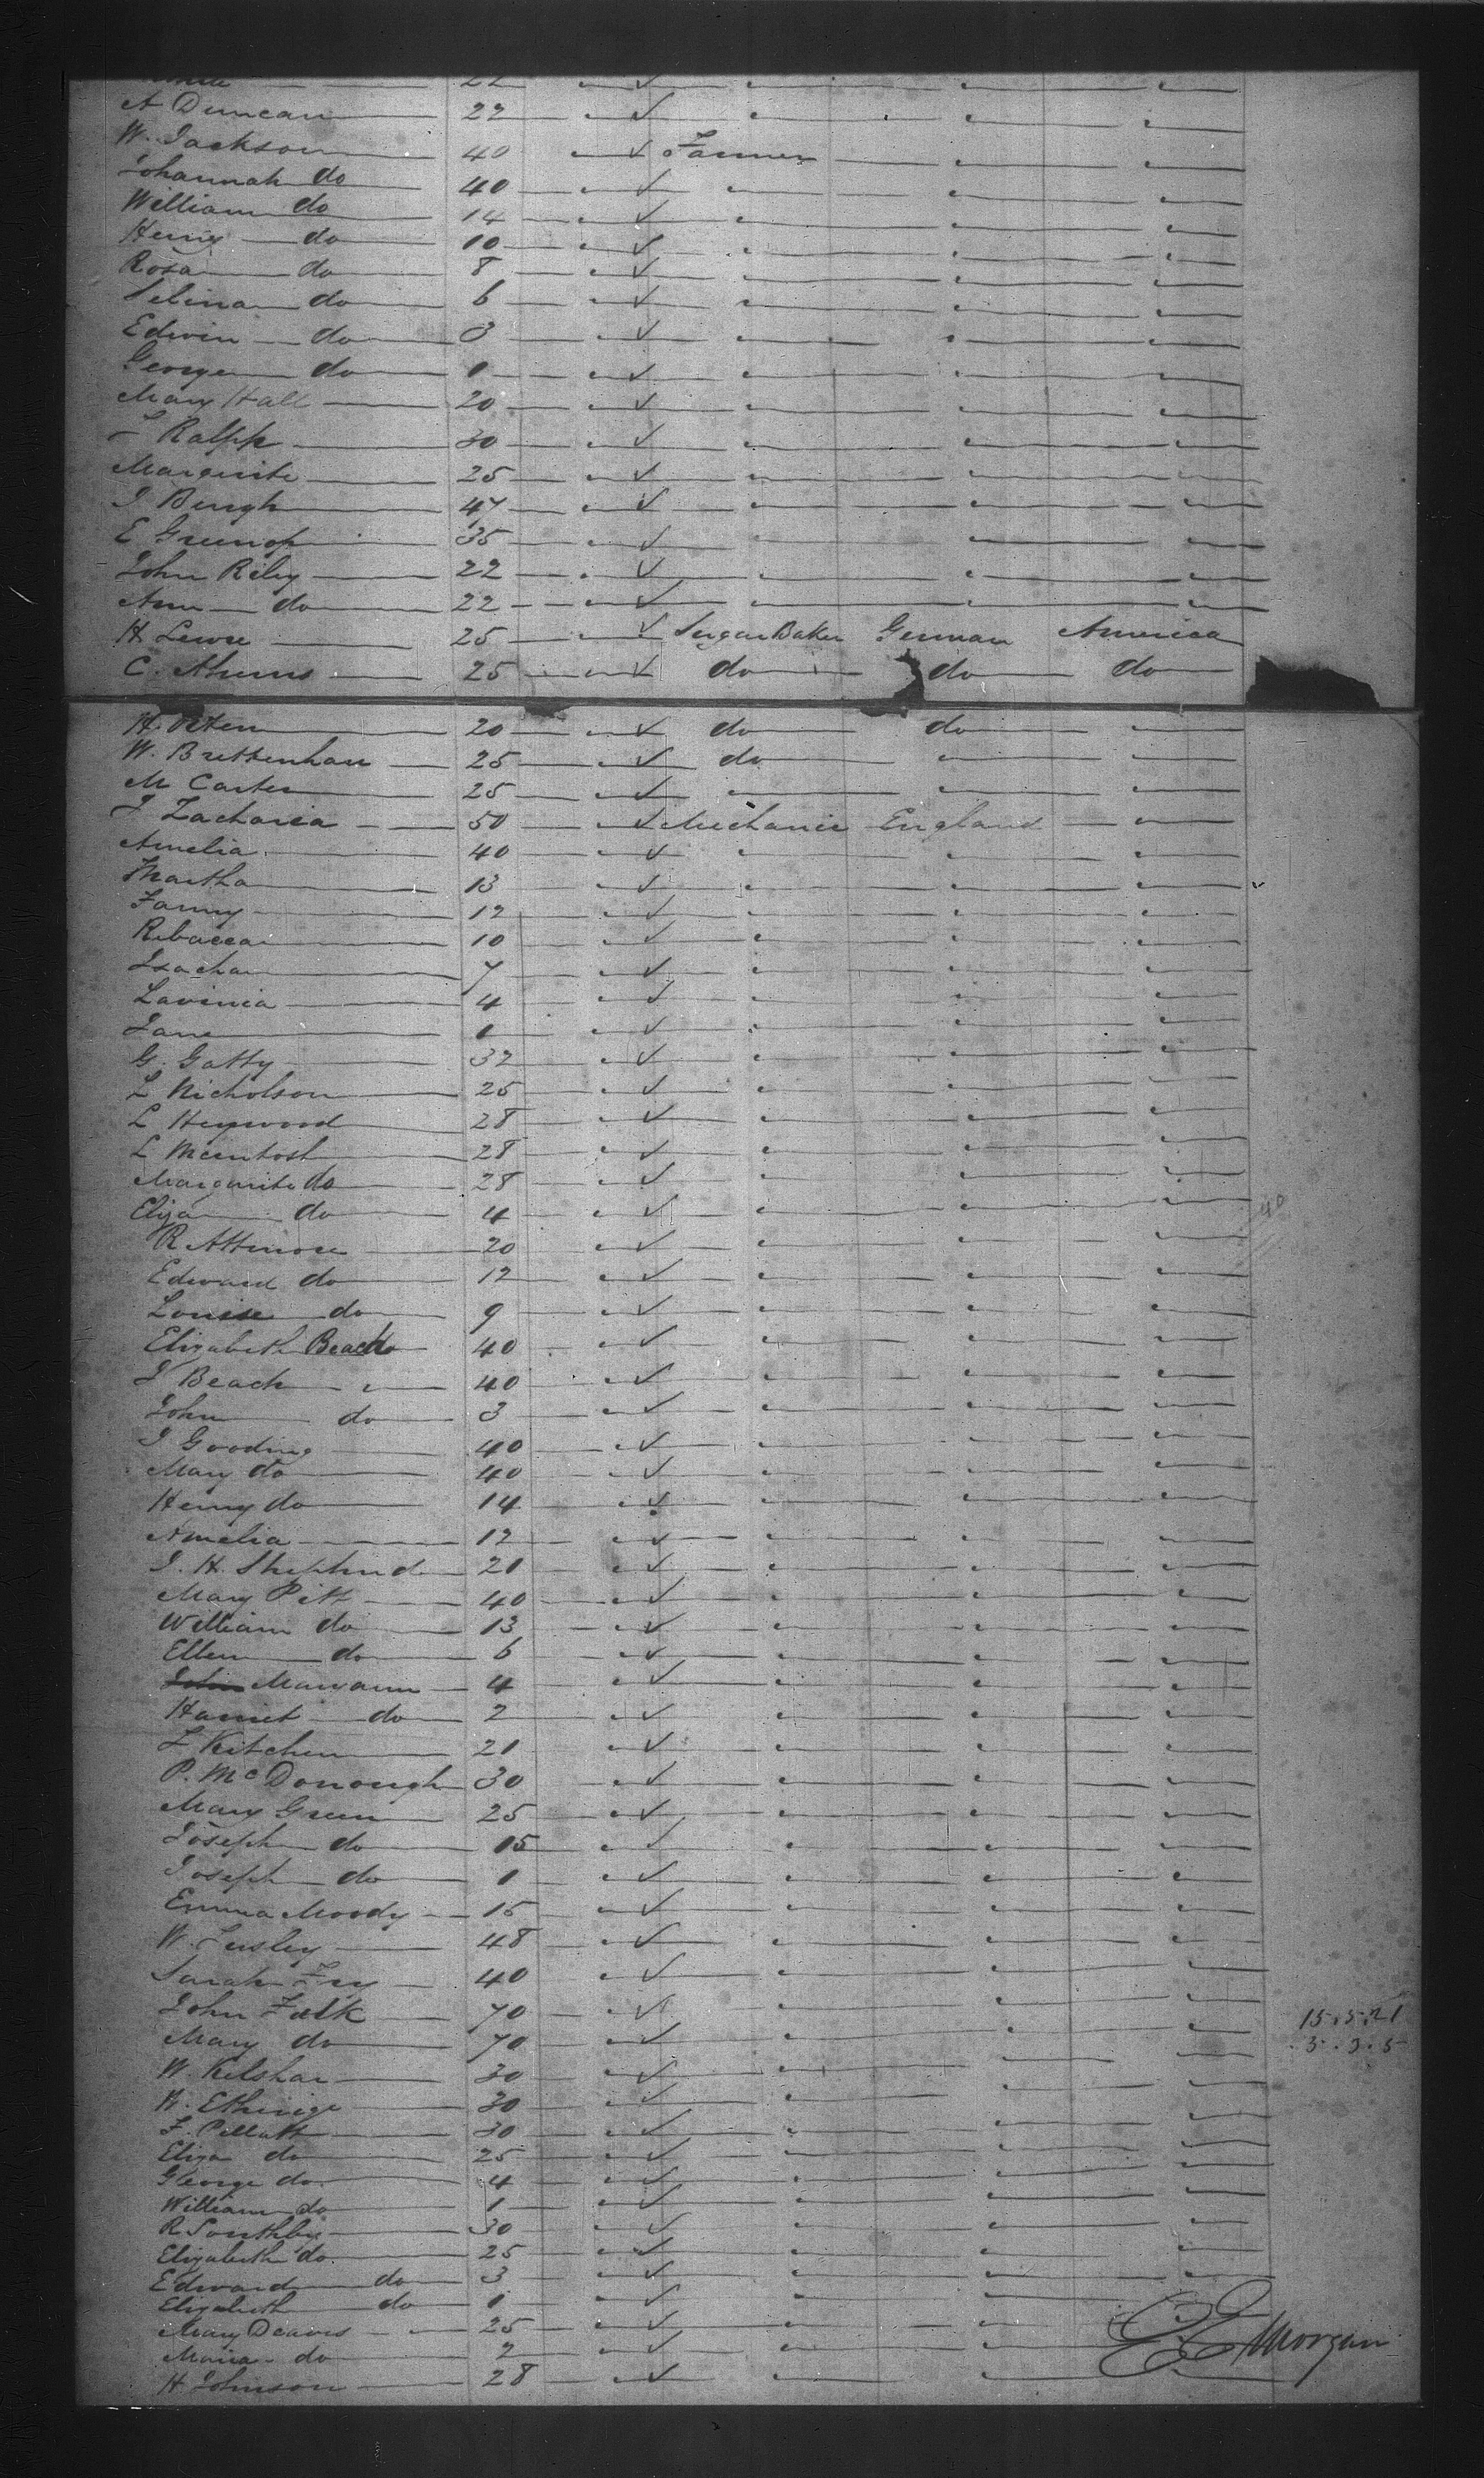 22
A Duncan 22 " ✓ " " "
W. Jackson 40 " ✓ Farmer " "
Johannah do 40 " ✓ " " "
William do 14 " ✓ " " "
Henry do 10 " ✓ " " "
Rosa do 8 " ✓ " " "
Selina do 6 " ✓ " " "
Edwin do 3 " ✓ " " "
George do 1 " ✓ " " "
Mary Hall 20 " ✓ " " "
Ralph 30 " ✓ " " "
Margerite 25 " ✓ " " "
J Bengh 47 " ✓ " " "
E 35 " ✓ " " "
John Riley 22 " ✓ " " "
Ann do 22 " ✓ " " "
H 25 " ✓ Sugar Baker German America
C. Ahrens 25 " ✓ do do do
H. 20 " ✓ do do "
W. Brettenhan 25 " ✓ do " "
M Carter 25 " ✓ " " "
J Zacharia 50 " ✓ Mechanic England "
Amelia 40 " ✓ " " "
Martha 13 " ✓ " " "
Fanny 12 " ✓ " " "
Rebacca 10 " ✓ " " "
Isachar 7 " ✓ " " "
Lavinia 4 " ✓ " " "
Jane 1 " ✓ " " "
G. Gatty 32 " ✓ " " "
L Nicholson 25 " ✓ " " "
L Heywood 28 " ✓ " " "
L McIntosh 28 " ✓ " " "
Margarite do 28 " ✓ " " "
Eliza do 4 " ✓ " " "
R Attmore 20 " ✓ " " "
Edward do 12 " ✓ " " "
Louise do 9 " ✓ " " "
Elizabeth Beach 40 " ✓ " " "
J Beach 40 " ✓ " " "
John do 3 " ✓ " " "
J Gooding 40 " ✓ " " "
Mary do 40 " ✓ " " "
Henry do 14 " ✓ " " "
Amelia 12 " ✓ " " "
J. H. Shepherd 20 " ✓ " " "
Mary Pitt 40 " ✓ " " "
William do 13 " ✓ " " "
Ellen do 6 " ✓ " " "
John Maryann 4 " ✓ " " "
Harriet do 2 " ✓ " " "
Kitchen 21 " ✓ " " "
P. McDonough 30 " ✓ " " "
Mary Green 25 " ✓ " " "
Joseph do 15 " ✓ " " "
Joseph do 1 " ✓ " " "
Emma Moody 15 " ✓ " " "
W. 48 " ✓ " " "
Sarah Fry 40 " ✓ " " "
John Falk 70 " ✓ " " "
Mary do 70 " ✓ " " "
W. Kelshar 30 " ✓ " " "
Etherige 30 " ✓ " " "
F. Pillatt 30 " ✓ " " "
Eliza do 25 " ✓ " " "
George do 4 " ✓ " " "
William do 1 " ✓ " " "
R Southby 30 " ✓ " " "
Elizabeth do 25 " ✓ " " "
Edward do 3 " ✓ " " "
Elizabeth do 1 " ✓ " " "
Mary Deaves 25 " ✓ " "
Maria do 2 " ✓ " "
H Johnson 28 " ✓ " "
E E Morgan